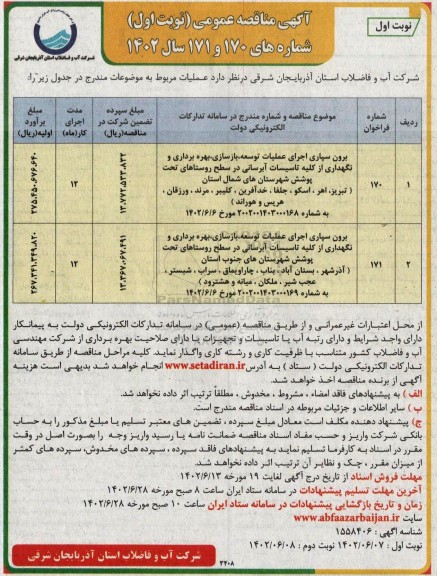 آگهی مناقصه عمومی (نوبت اول)
شماره های ۱۷۰ و ۱۷۱ سال ۱۴۰۲
نوبت اول
شرکت آب و فاضلاب استان آذربایجان شرقی
شرکت آب و فاضلاب استان آذربایجان شرقی درنظر دارد عملیات مربوط به موضوعات مندرج در جدول زیر را:
ردیف
شماره فراخوان
موضوع مناقصه و شماره مندرج در سامانه تدارکات الکترونیکی دولت
مبلغ سپرده تضمین شرکت در مناقصه(ریال)
مدت اجرای کار(ماه)
مبلغ برآورد اولیه(ریال)
۱
۱۷۰
برون سپاری اجرای عملیات توسعه،بازسازی،بهره برداری و
نگهداری از کلیه تاسیسات آبرسانی در سطح روستاهای تحت
پوشش شهرستان های شمال استان
( تبریز، اهر ، اسکو ، جلفا ، خدآفرین ، کلیبر ، مرند ، ورزقان ،
هریس و هوراند )
به شماره ۲۰۰۲۰۰۱۴۰۳۰۰۰۱۶۸ مورخ ۱۴۰۲/۶/۶
۱۳,۷۷۲,۵۳۳,۸۳۲
۱۲
۲۷۵,۴۵۰,۶۷۶,۶۴۰
۲
۱۷۱
برون سپاری اجرای عملیات توسعه،بازسازی،بهره برداری و
نگهداری از کلیه تاسیسات آبرسانی در سطح روستاهای تحت
پوشش شهرستان های جنوب استان
( آذرشهر ، بستان آباد، بناب ، چاراویماق ، سراب ، شبستر ،
عجب شیر ، ملکان ، میانه و هشترود )
به شماره ۲۰۰۲۰۰۱۴۰۳۰۰۰۱۶۹ مورخ ۱۴۰۲/۶/۶
۱۳,۳۶۷,۰۶۷,۴۹۱
۱۲
۲۶۷,۳۴۱,۳۴۹,۸۲۰
ParsNamadData
از محل اعتبارات غیرعمرانی و از طریق مناقصه (عمومی) در سامانه تدارکات الکترونیکی دولت به پیمانکار
دارای واجد شرایط و دارای رتبه آب یا تاسیسات و تجهیزات یا دارای صلاحیت بهره برداری از شرکت مهندسی
آب و فاضلاب کشور متناسب با ظرفیت کاری و رشته کاری واگذار نماید. کلیه مراحل مناقصه از طریق سامانه
تدارکات الکترونیکی دولت ( ستاد ) به آدرس www.setadiran.ir انجام خواهد شد بدیهی است هزینه
آگهی از برنده مناقصه اخذ خواهد شد.
الف ) به پیشنهادهای فاقد امضاء ، مشروط ، مخدوش ، مطلقاً ترتیب اثر داده نخواهد شد.
ب ) سایر اطلاعات و جزئیات مربوطه در اسناد مناقصه مندرج است.
ج) پیشنهاد دهنده مکلف است معادل مبلغ سپرده ، تضمین های معتبر تسلیم یا مبلغ مذکور را به حساب
بانکی شرکت واریز و حسب مفاد اسناد مناقصه ضمانت نامه یا رسید واریز وجه را بصورت اصل در وقت
مقرر در اسناد به کارفرما تسلیم نماید به پیشنهادهای فاقد سپرده ، سپرده های مخدوش، سپرده های کمتر
از میزان مقرر ، چک و نظایر آن ترتیب اثر داده نخواهد شد.
مهلت فروش اسناد از تاریخ درج آگهی لغایت ۱۹ مورخه ۱۴۰۲/۶/۱۳
آخرین مهلت تسلیم پیشنهادات در سامانه ستاد ایران ساعت ۸ صبح مورخه ۱۴۰۲/۶/۲۸
زمان و تاریخ بازگشایی پیشنهادات در سامانه ستاد ایران ساعت ۱۰ صبح مورخه ۱۴۰۲/۶/۲۸
سایت www.abfaazarbaijan.ir
شناسه آگهی : ۱۵۵۸۴۰۶
نوبت اول : ۱۴۰۲/۰۶/۰۷ نوبت دوم : ۱۴۰۲/۰۶/۰۸
شرکت آب و فاضلاب استان آذربایجان شرقی
۲۲۰۸